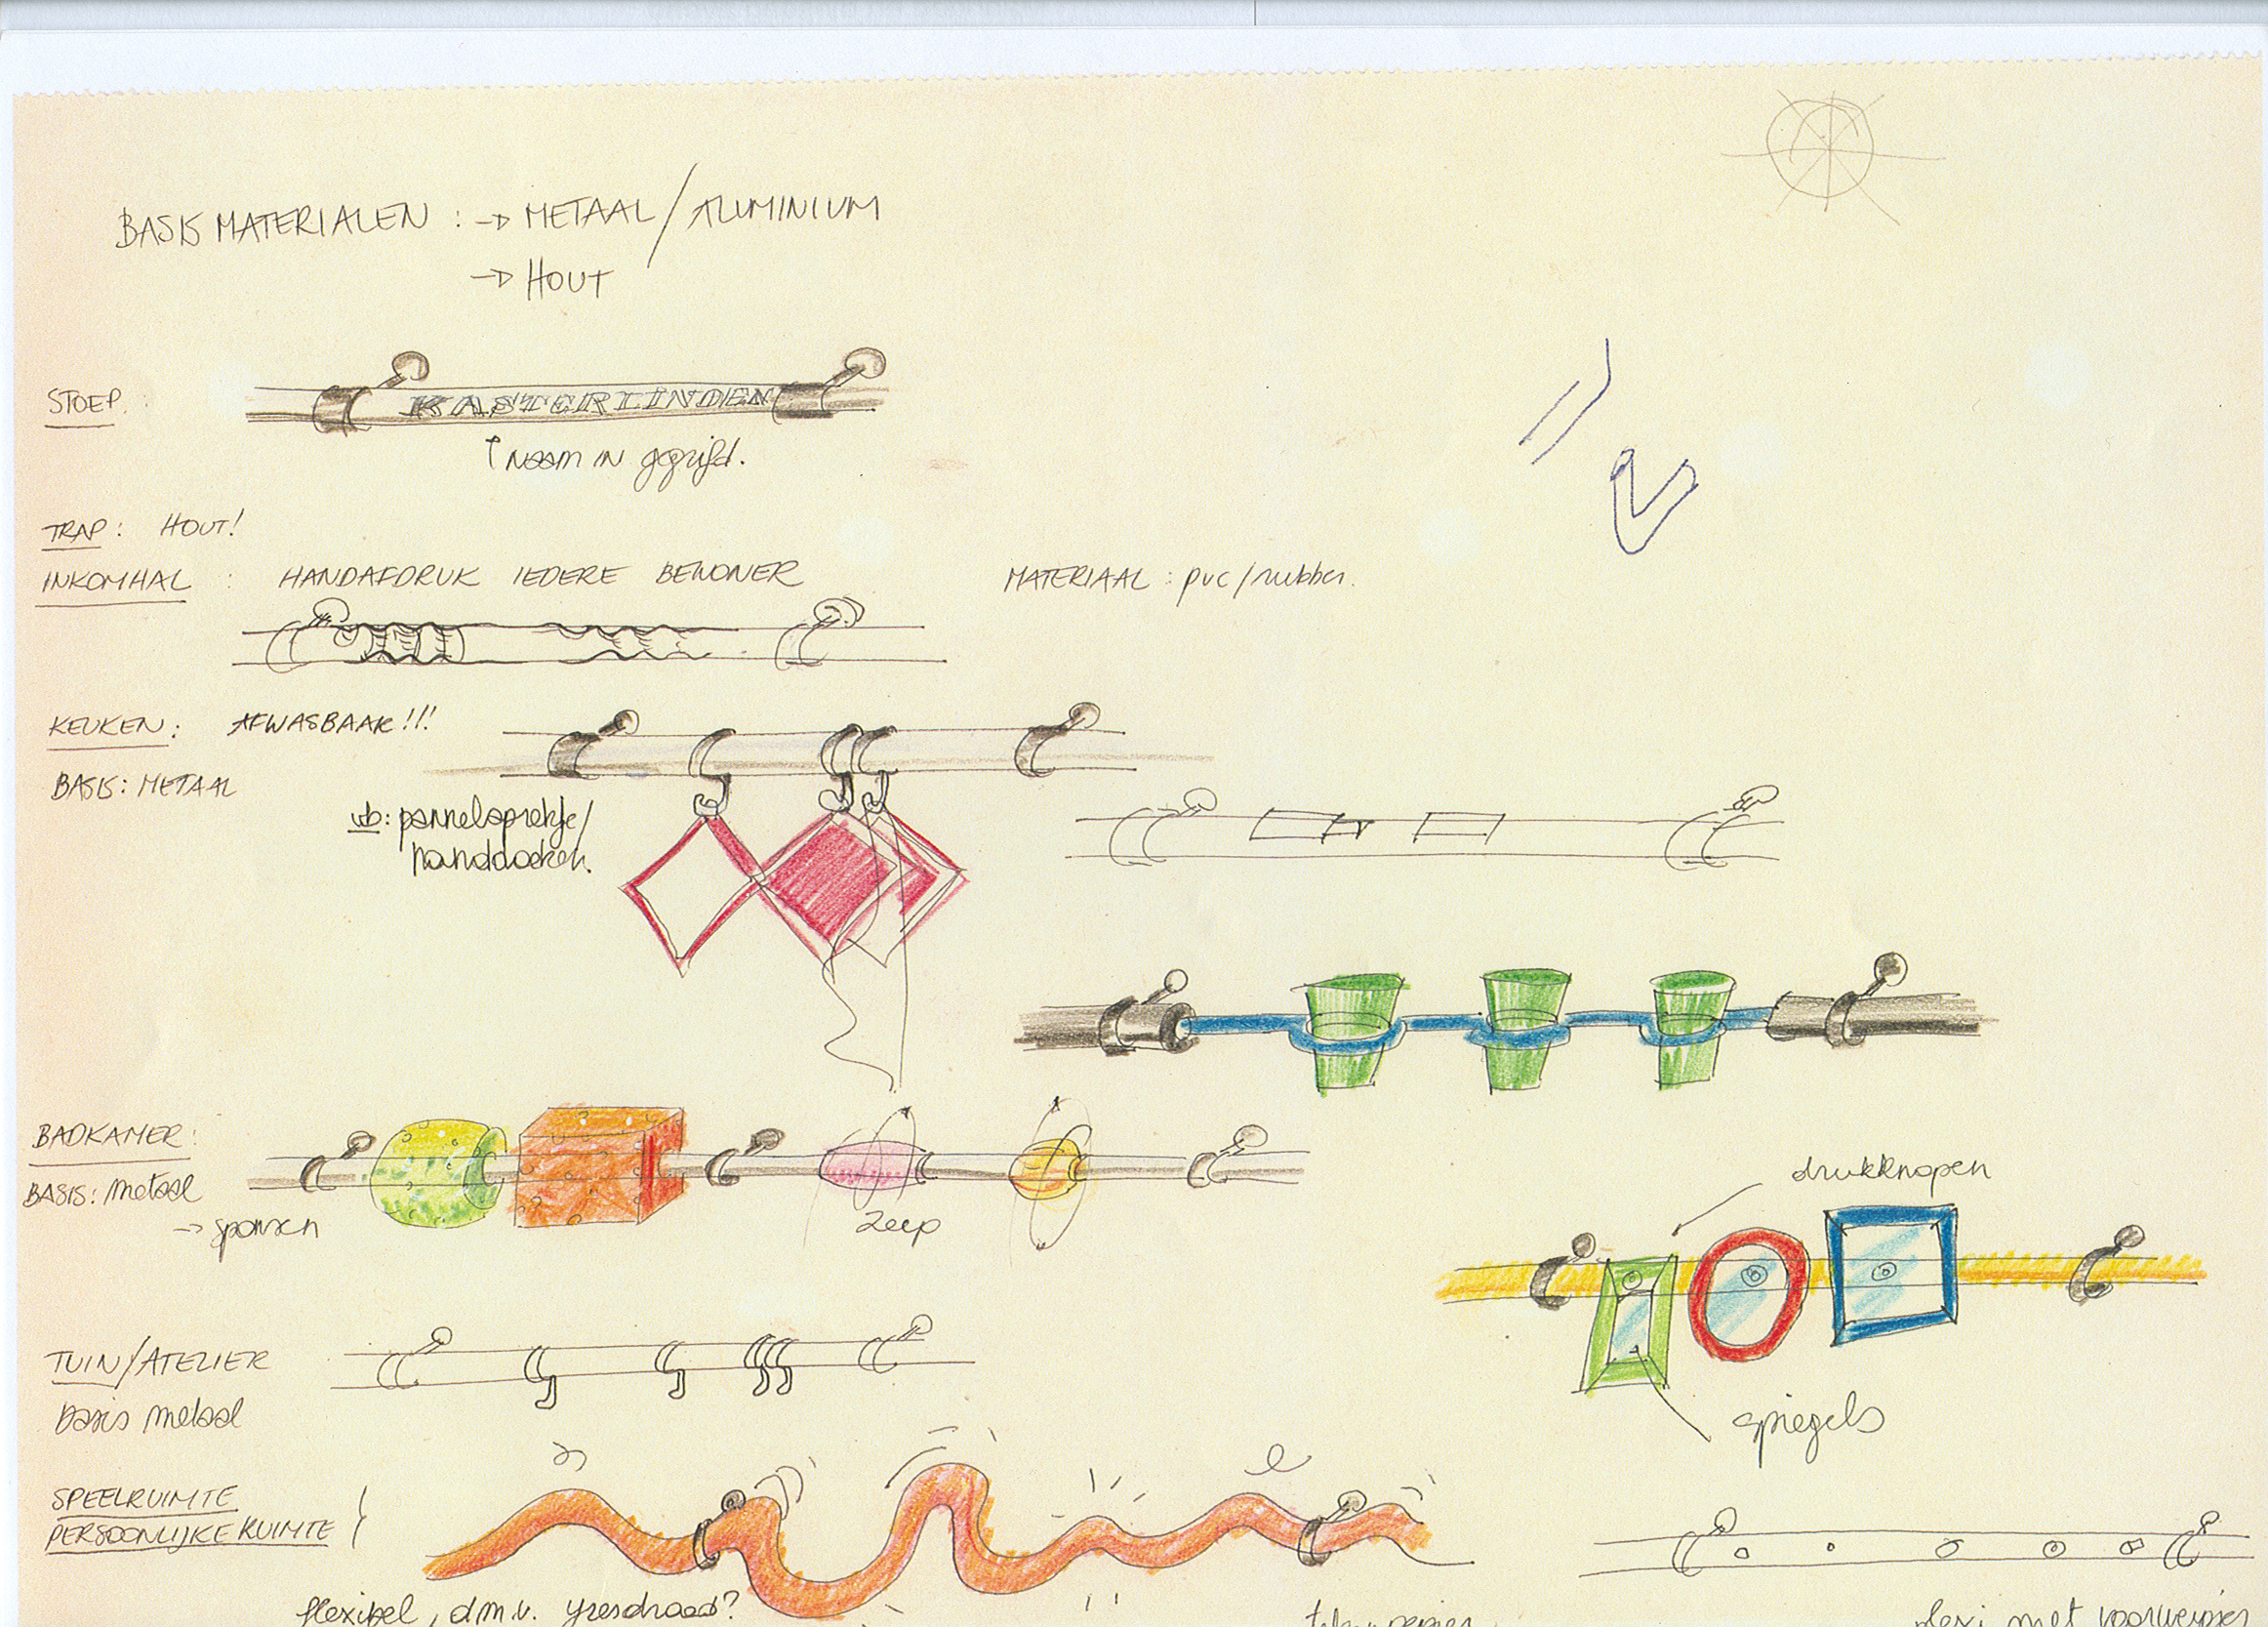 BASIS MATERIALEN : → METAAL / ALUMINIUM
→ HOUT
STOEP :
KASTERLINDEN
↑ naam in gegrift.
TRAP : HOUT!
INKOMHAL : HANDAFDRUK IEDERE BEWONER MATERIAAL : pvc / rubber.
KEUKEN : AFWASBAAR !!!
BASIS : METAAL
vb: pannelapretje/
handdoeken.
BADKAMER :
BASIS : Metaal
→ sponsen
zeep
drukknopen
spiegels
TUIN/ATELIER
basis metaal
SPEELRUIMTE
PERSOONLIJKE RUIMTE
flexibel, d.m.v. ijzerdraad?
plexi met voorwerpjes